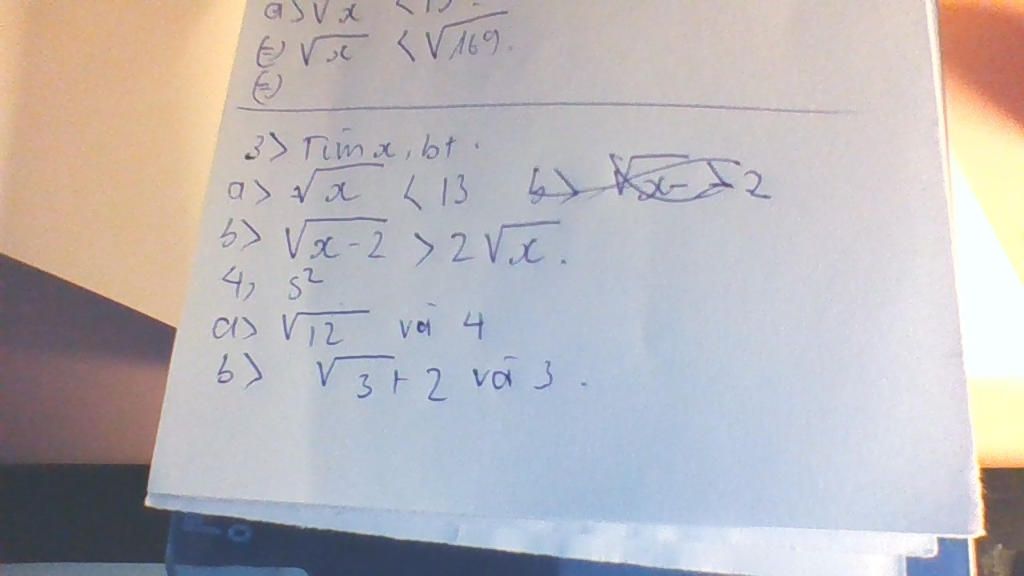 a> √x < 13.
(=) √x < √169.
(=)
3> Tìm x, bt.
a> √x < 13
b> √x-2 > 2√x.
4, s²
a> √12 và 4
b> √3 + 2 và 3.